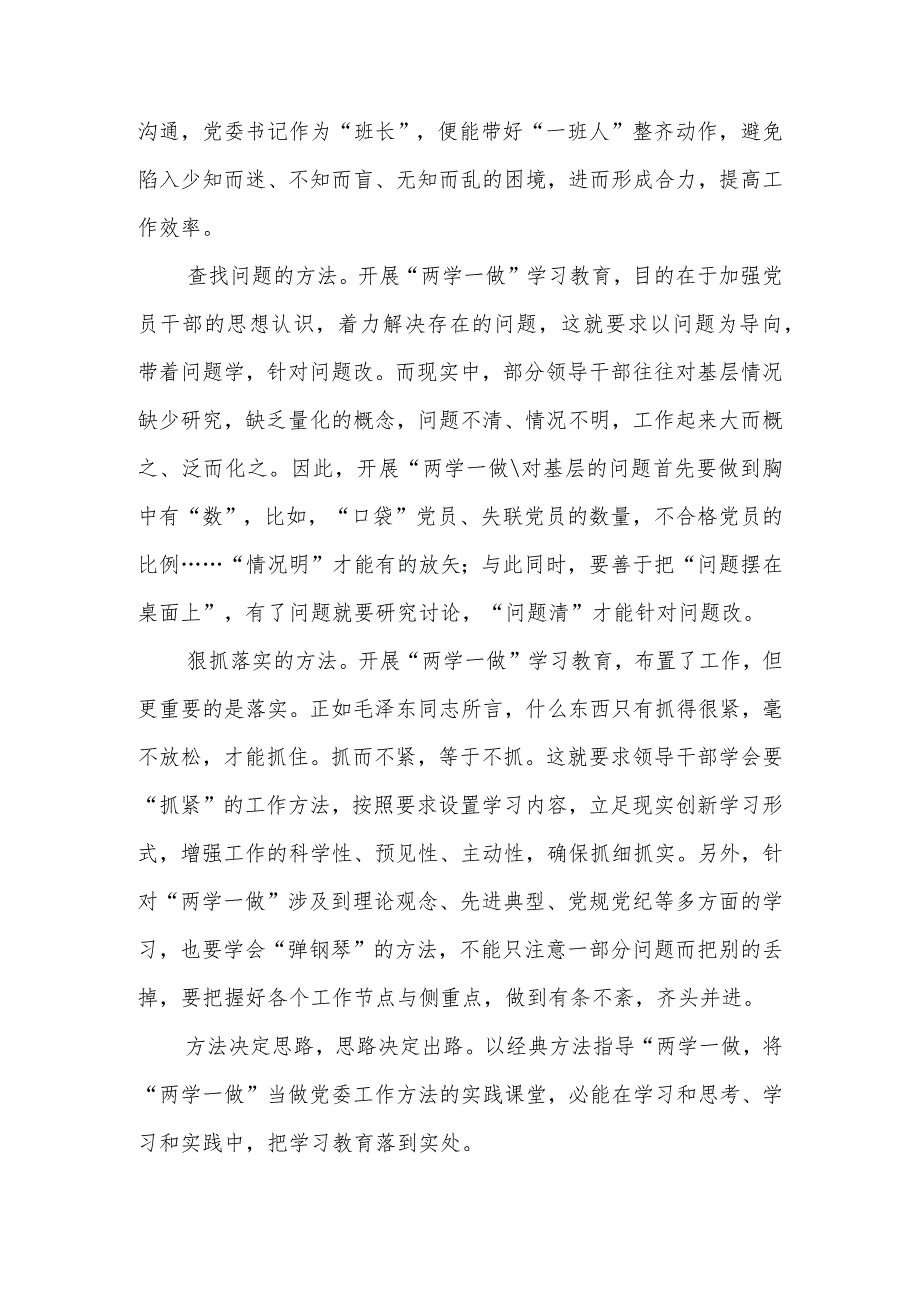 沟通，党委书记作为“班长”，便能带好“一班人”整齐动作，避免
陷入少知而迷、不知而盲、无知而乱的困境，进而形成合力，提高工
作效率。
查找问题的方法。开展“两学一做”学习教育，目的在于加强党
员干部的思想认识，着力解决存在的问题，这就要求以问题为导向，
带着问题学，针对问题改。而现实中，部分领导干部往往对基层情况
缺少研究，缺乏量化的概念，问题不清、情况不明，工作起来大而概
之、泛而化之。因此，开展“两学一做\对基层的问题首先要做到胸
中有“数”，比如，“口袋”党员、失联党员的数量，不合格党员的
比例……“情况明”才能有的放矢；与此同时，要善于把“问题摆在
桌面上”，有了问题就要研究讨论，“问题清”才能针对问题改。
狠抓落实的方法。开展“两学一做”学习教育，布置了工作，但
更重要的是落实。正如毛泽东同志所言，什么东西只有抓得很紧，毫
不放松，才能抓住。抓而不紧，等于不抓。这就要求领导干部学会要
“抓紧”的工作方法，按照要求设置学习内容，立足现实创新学习形
式，增强工作的科学性、预见性、主动性，确保抓细抓实。另外，针
对“两学一做”涉及到理论观念、先进典型、党规党纪等多方面的学
习，也要学会“弹钢琴”的方法，不能只注意一部分问题而把别的丢
掉，要把握好各个工作节点与侧重点，做到有条不紊，齐头并进。
方法决定思路，思路决定出路。以经典方法指导“两学一做，将
“两学一做”当做党委工作方法的实践课堂，必能在学习和思考、学
习和实践中，把学习教育落到实处。